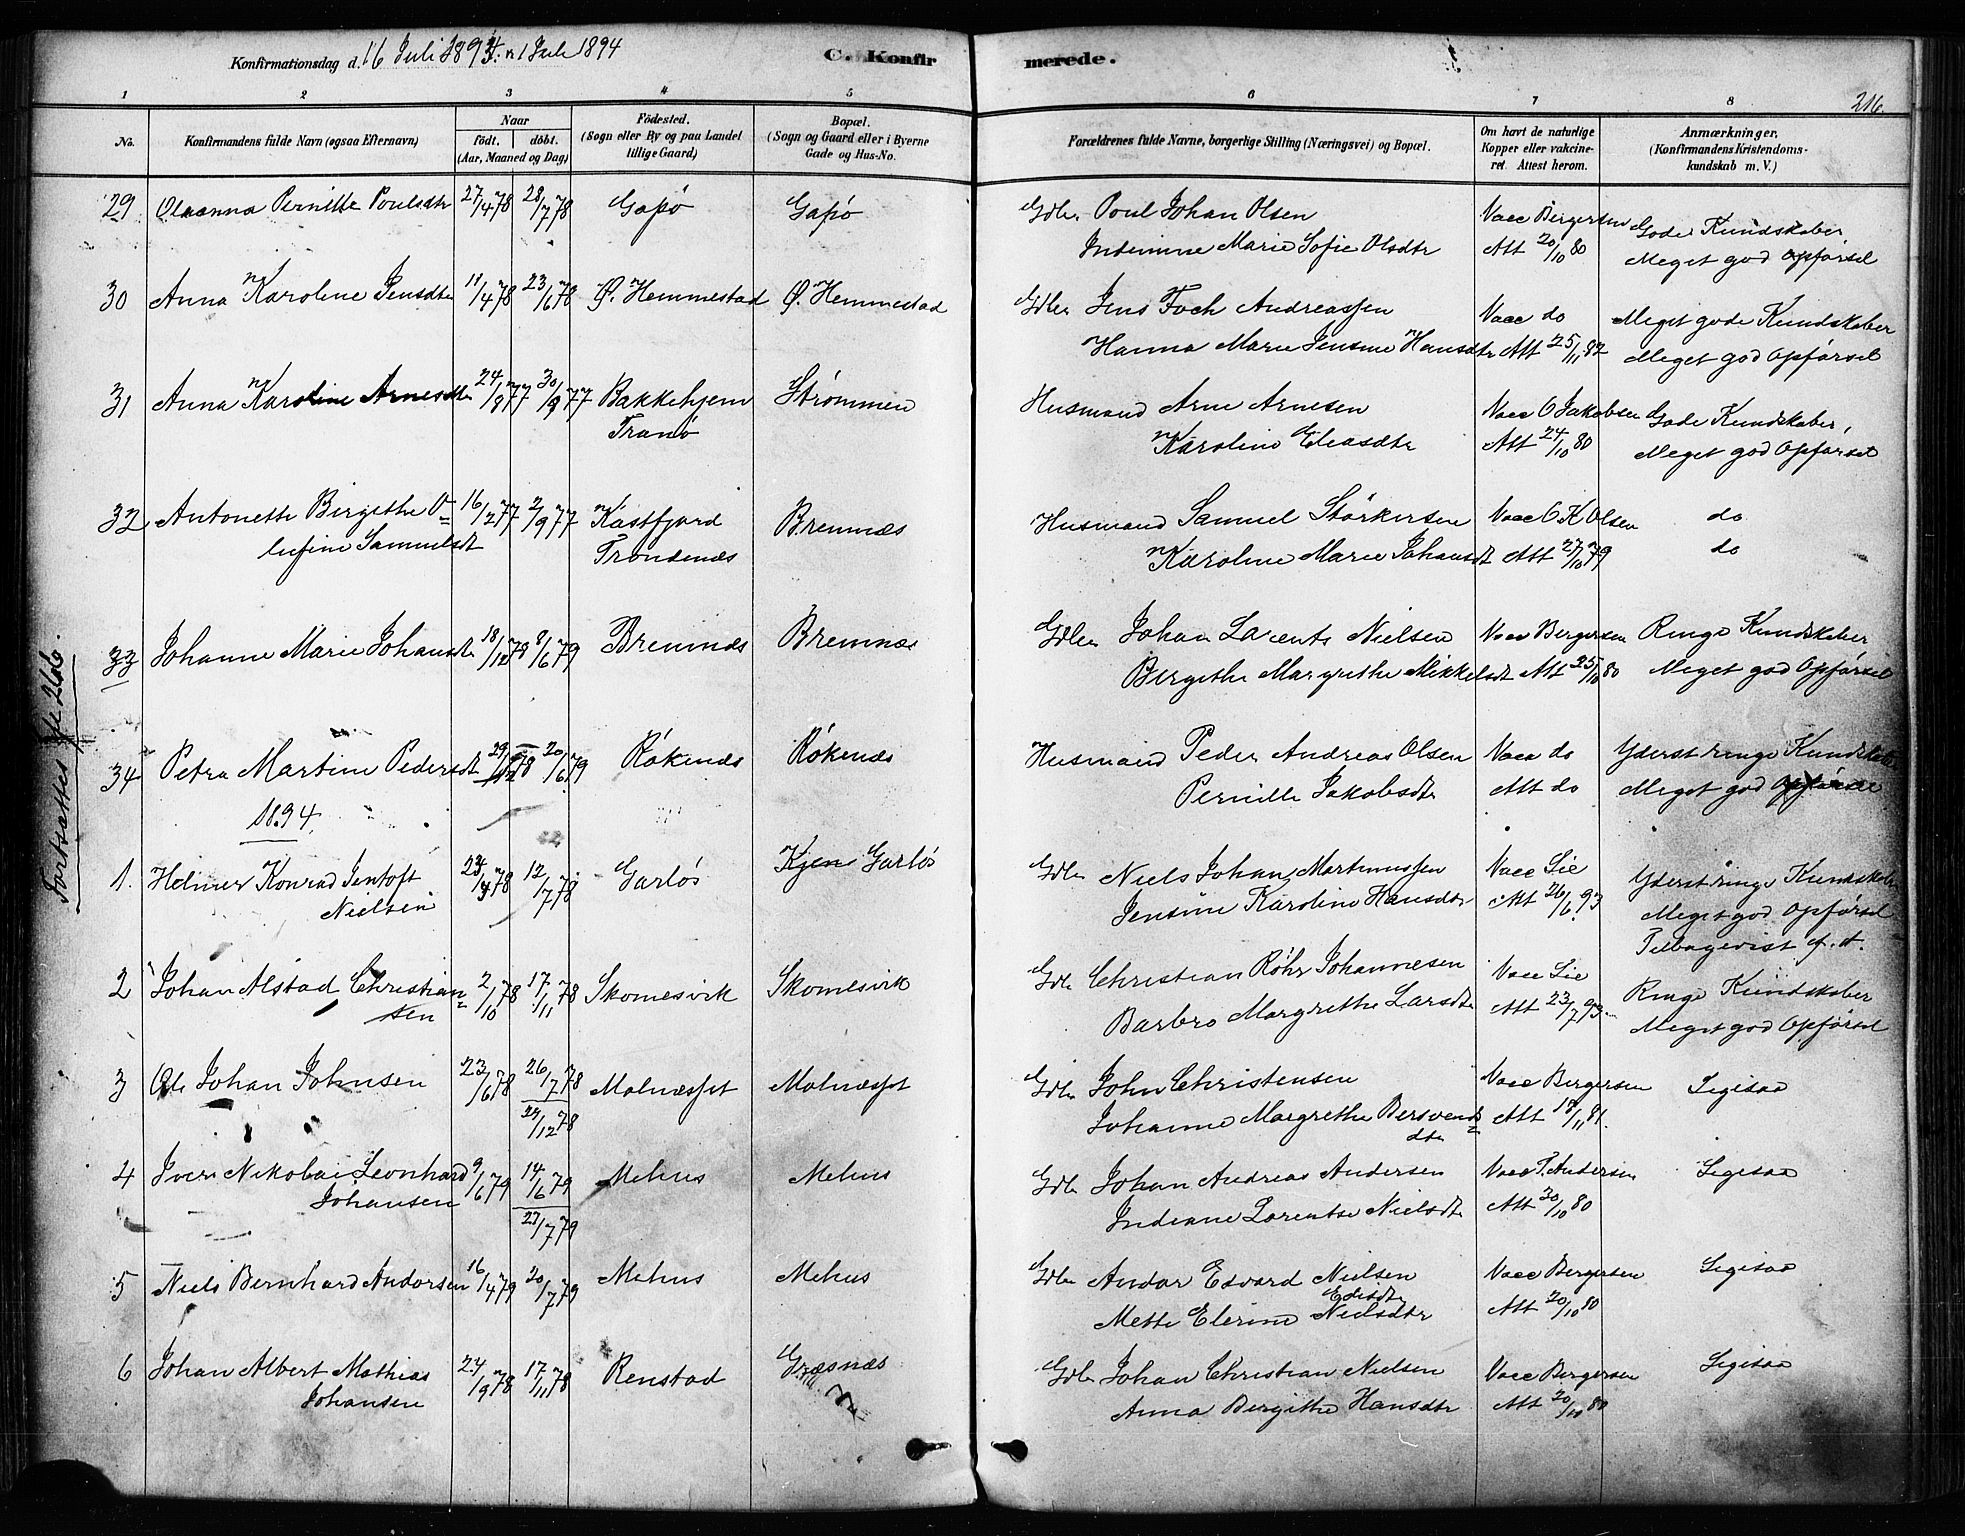 Konfirmationsdag d. 16 Juli 1893. n 1 Juli 1894
C. Konfirmerede.
216.
1 2 3 4 5 6 7 8
No.
Konfirmandens fulde Navn (ogsaa Efternavn)
Naar
födt. döbt.
(Aar, Maaned og Dag)
Födested.
(Sogn eller By og paa Landet
tillige Gaard)
Bopæl.
(Sogn og Gaard eller i Byerne
Gade og Hus-No.
Forældrenes fulde Navne, borgerlige Stilling (Næringsvei) og Bopæl.
Om havt de naturlige
Kopper eller vakcine-
ret. Attest herom.
Anmærkninger.
(Konfirmandens Kristendoms-
kundskab m. V.)
29 Olaanna Pernille Poulsdtr 27/4 78 28/7 78 Gapö Gapö Gdbr Poul Johan Olsen Vacc Bergersen Gode Kundskaber
Indeanne Marie Sofie Olsdtr Att 20/10 80 Meget god Opförsel
30 Anna Karoline Jensdtr 11/4 78 23/6 78 Ø. Hemmestad Ø. Hemmestad Gdbr Jens Foch Andreassen Vacc do Meget gode Kundskaber
Hanna Marie Jensine Hansdtr Att 25/11 82 Meget god Opförsel
31 Anna Karoline Arnesdtr 24/8 77 30/9 77 Bakkehjem Strömmen Husmand Arne Arnesen Vacc O Jakobsen Gode Kundskaber,
Tranö Karoline Eliasdtr Att 24/10 80 Meget god Opförsel
32 Antonette Birgithe O= 16/2 77 2/9 77 Kastfjord Bremnæs Husmand Samuel Störkersen Vacc O K Olsen do
lufine Samuelsdt Trondenæs Karoline Marie Johansdt Att 27/10 79 do
33 Johanne Marie Johansdt 18/12 78 8/6 79 Bremnæs Bremnæs Gdbr Johan Larents Nielsen Vacc Bergersen Ringe Kundskaber
Bergithe Margrethe Mikkelsdt Att 25/10 80 Meget god Opförsel
34 Petra Martine Pedersdt 29/12 78 20/6 79 Rökenæs Rökenæs Husmand Peder Andreas Olsen Vacc do Yderst ringe Kundskaber
Pernille Jakobsdtr Att do Meget god Opförsel
1894
1. Helmer Konrad Jentoft 78 12/7 78 Garlös Kjen Garlös Gdbr Niels Johan Martinussen Vacc Lie Yderst ringe Kundskaber
Nielsen Jensine Karoline Hansdtr Att 26/6 93 Meget god Opförsel
Tilbagevist f. A.
2 Johan Alstad Christian= 2/10 78 17/11 78 Skomesvik Skomesvik Gdbr Christian Röhr Johannesen Vacc Lie Ringe Kundskaber
sen Barbro Margrethe Larsdtr Att 23/7 93. Meget god Opförsel
3 Ole Johan Johnsen 23/6 78 26/7 78 Molnæsset Molnæsset Gdbr John Christensen Vacc Bergersen Ligesaa
27/12 78 Johanne Margrethe Bersvends= Att 18/11 81.
dtr
4 Iver Nikolai Leonhard 9/6 79 14/6 79 Mehus Mehus Gdbr Johan Andreas Andersen Vacc T. Andersen Ligesaa
Johansen 27/7 79 Indiane Lorentse Nielsdtr Att 30/10 80
5 Niels Bernhard Andorsen 16/4 79 20/7 79 Mehus Mehus Gdbr Andor Edvard Nielsen Vacc Bergersen Ligesaa
Mette Elerine Nielsdtr Att 20/10 80
6 Johan Albert Mathias 24/9 78 17/11 78 Renstad Græsnæs Gdbr Johan Christian Nielsen Vacc Bergersen Ligesaa
Johansen Anna Bergithe Hansdtr Att 20/10 80
Fortsættes Sde 266.